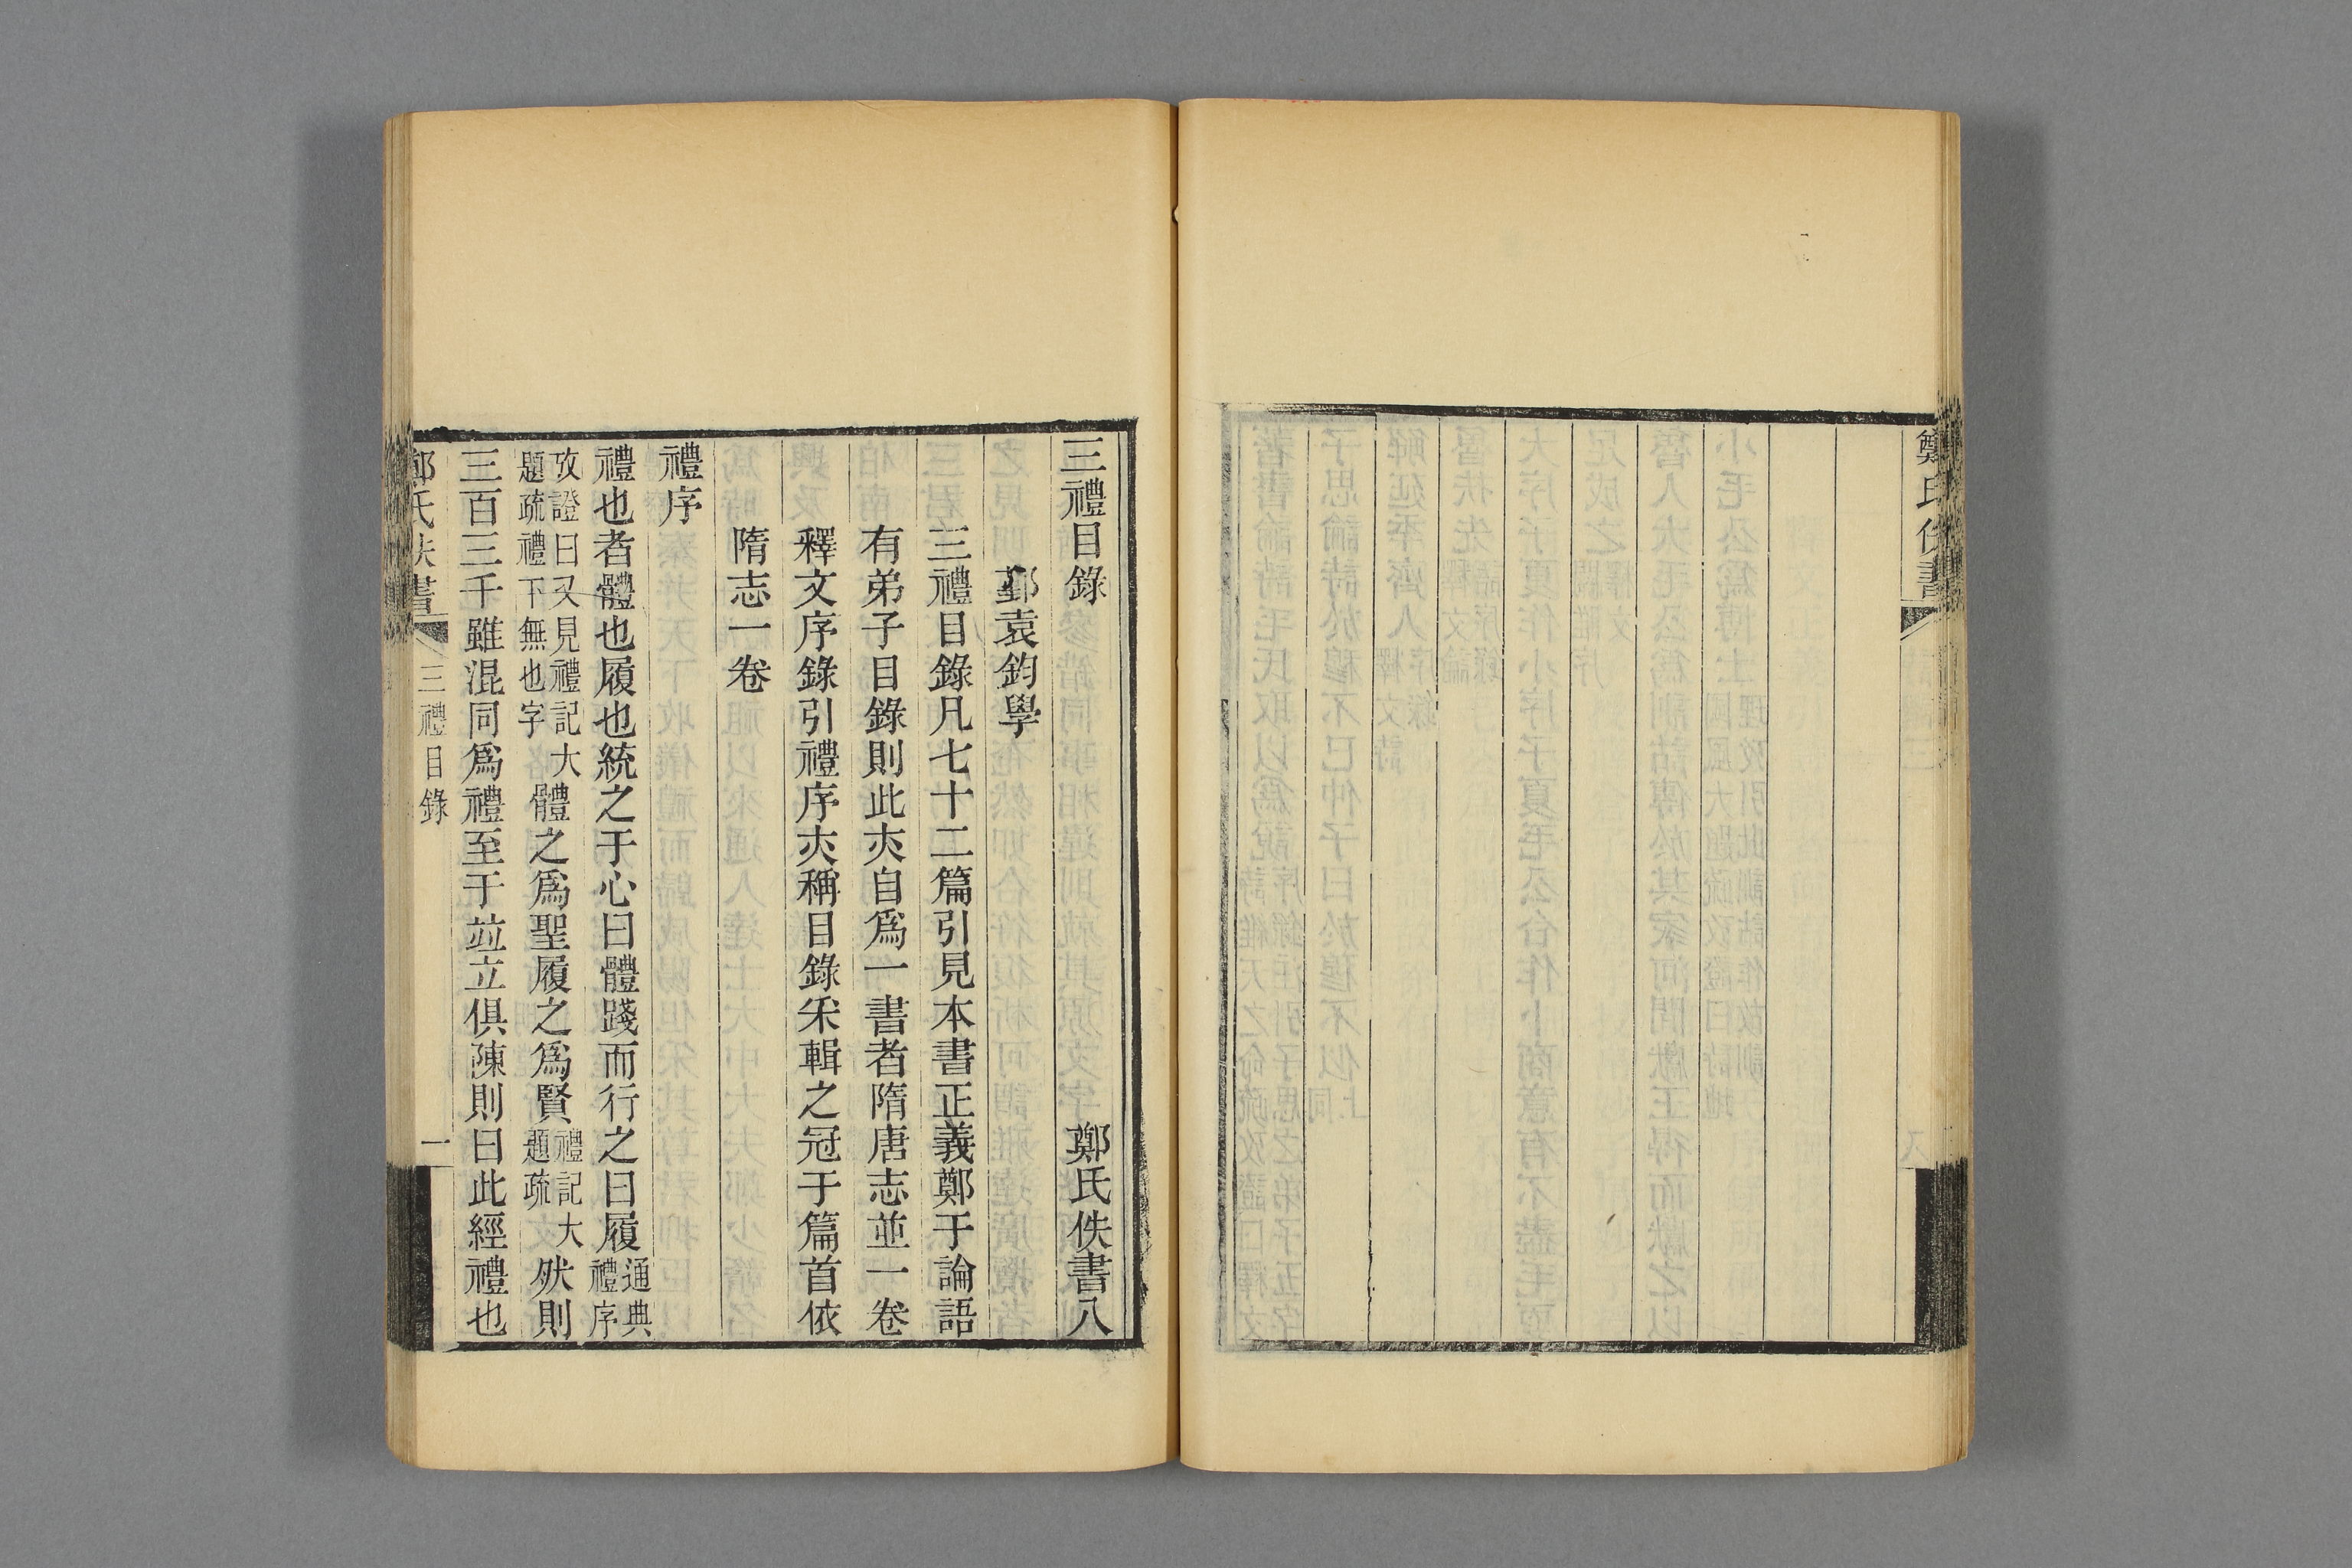 鄭氏佚書
三禮目錄　鄭氏佚書八
鄞袁鈞學
三禮目錄凡七十二篇引見本書正義鄭于論語
有弟子目錄則此夾自爲一書者隋唐志並一卷
釋文序錄引禮序夾稱目錄采輯之冠于篇首依
隋志一卷
禮序
禮也者體也履也統之于心曰體踐而行之曰履通典禮序
攷證曰又見禮記大題疏禮下無也字體之爲聖履之爲賢禮記大題疏然則
三百三千雖混同爲禮至于竝立俱陳則曰此經禮也
鄭氏佚書　三禮目錄　一